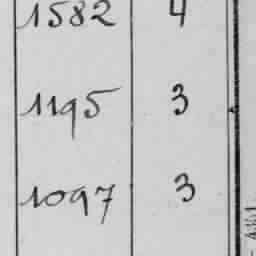 1582 4
1195 3
1097 3